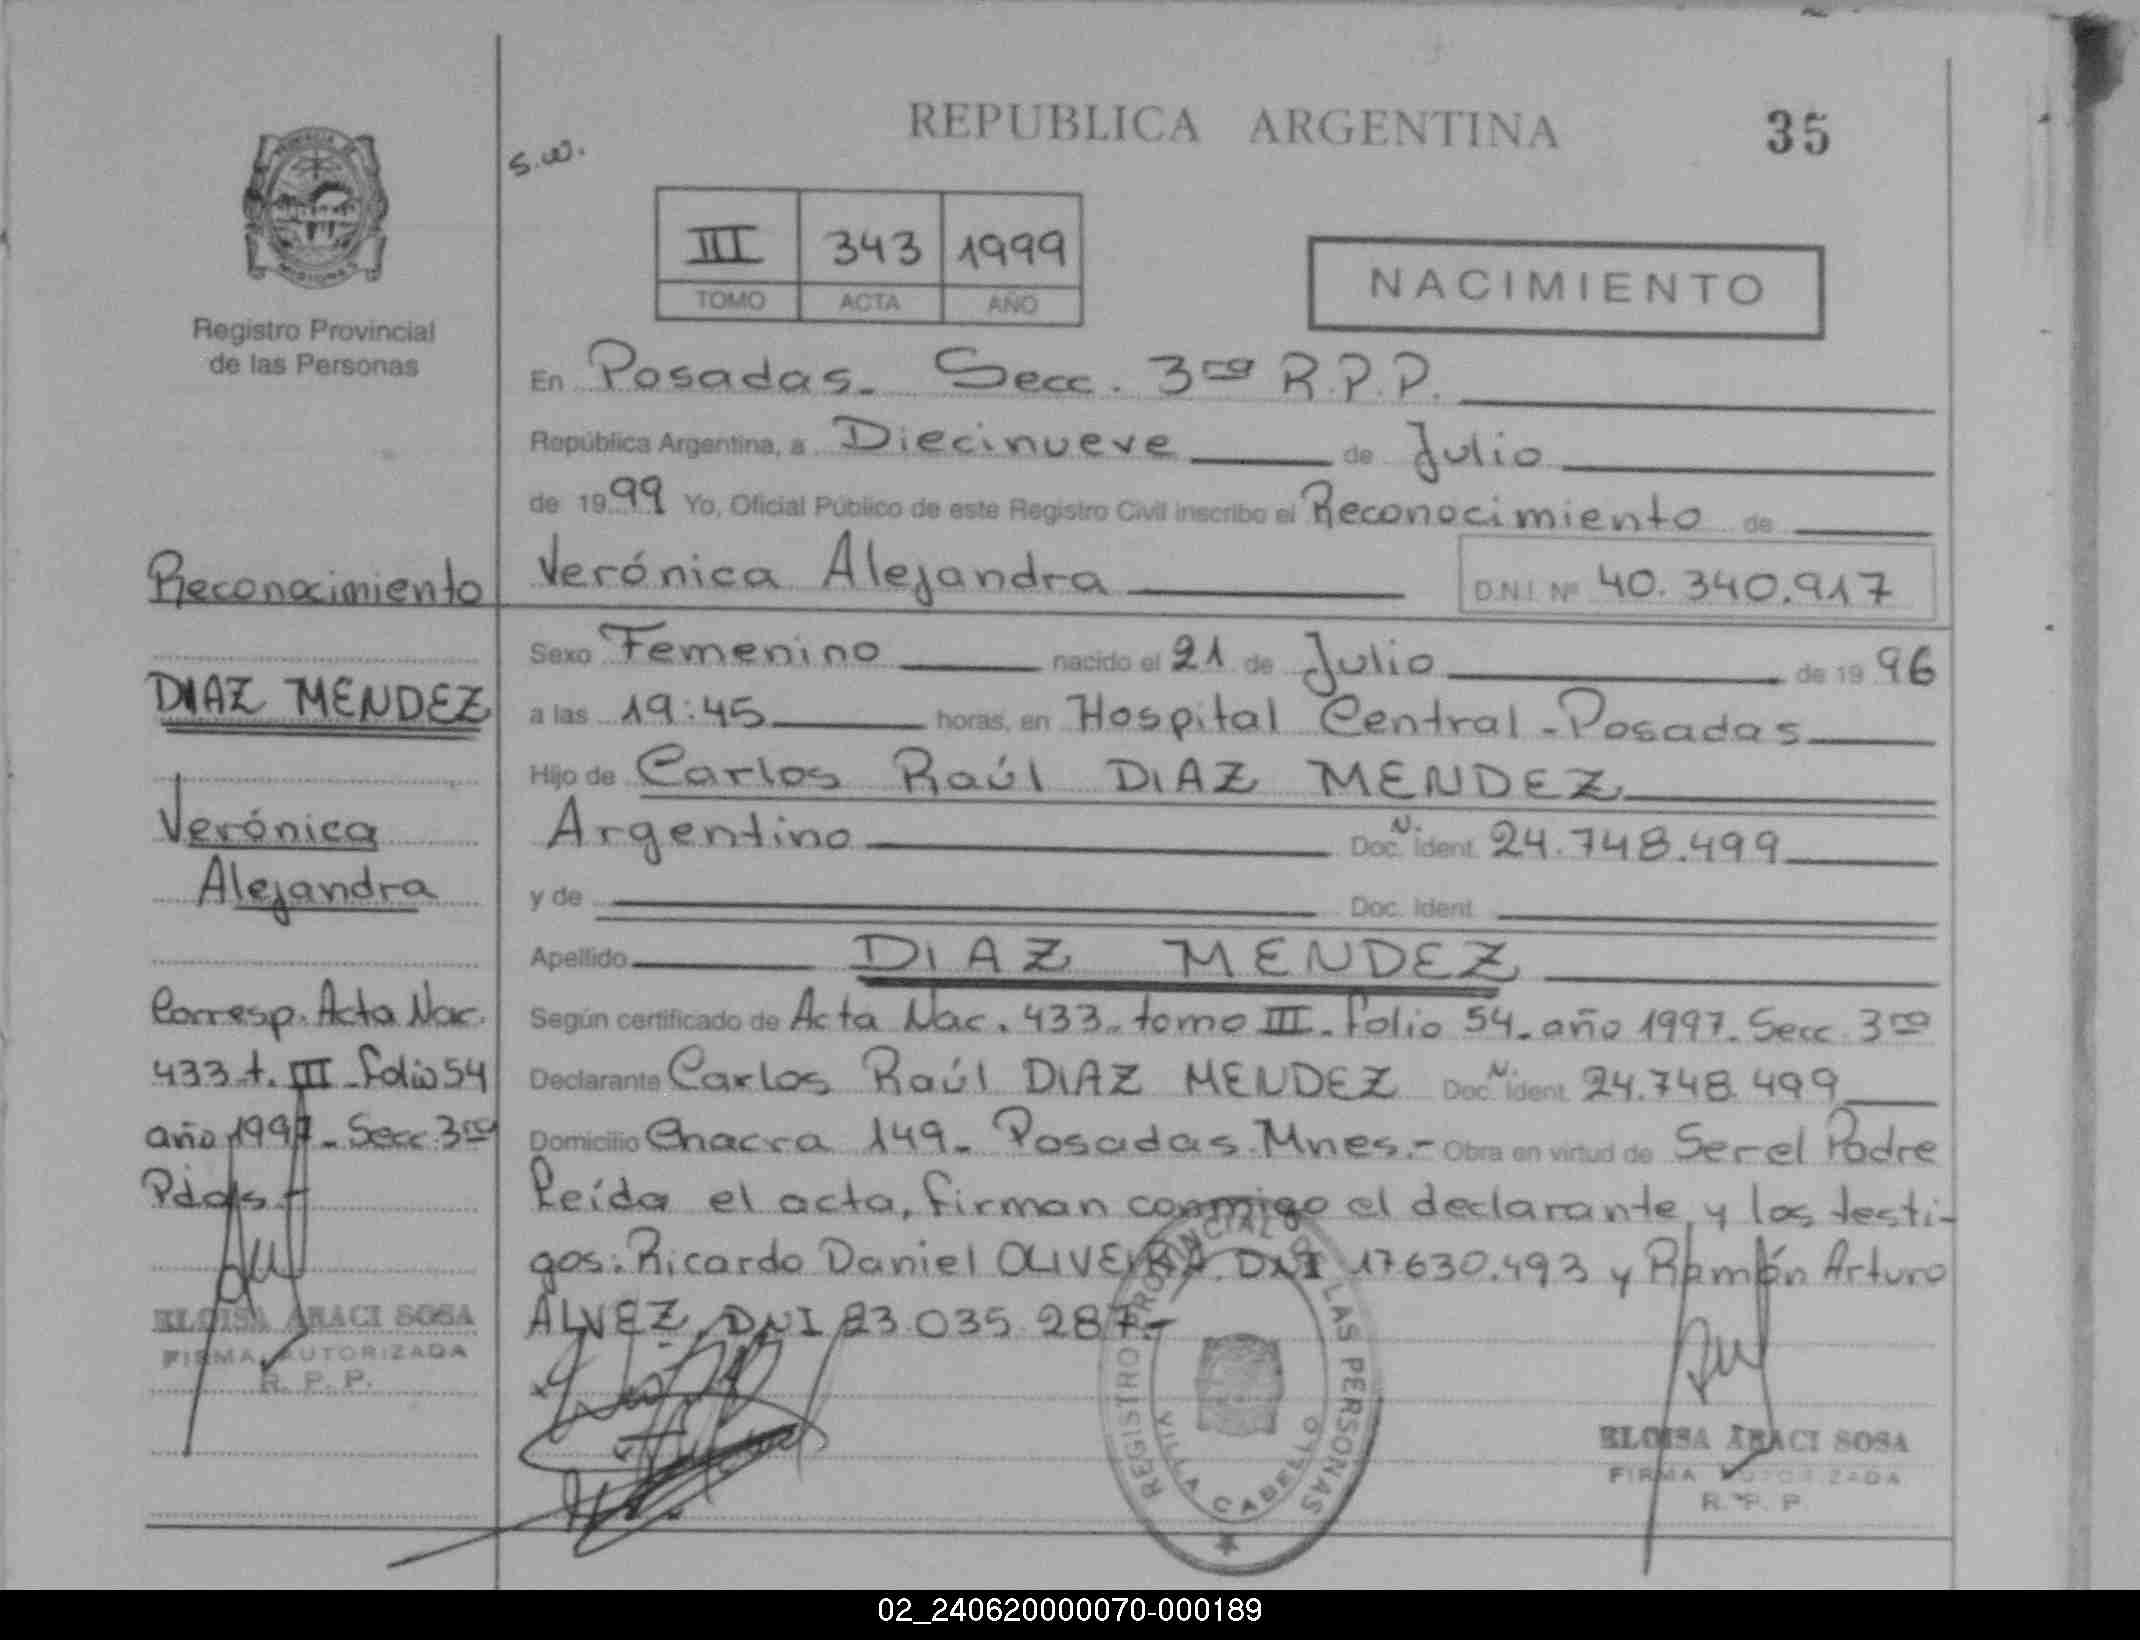 REPUBLICA ARGENTINA
35
s.w.
III 343 1999
TOMO ACTA AÑO
NACIMIENTO
Registro Provincial
de las Personas
En Posadas. Secc. 3ra R.P.P.
República Argentina, a Diecinueve de Julio
de 1999 Yo, Oficial Público de este Registro Civil inscribo el Reconocimiento de
Verónica Alejandra D.N.I. Nº 40.340.917
Sexo Femenino nacido el 21 de Julio de 1996
a las 19:45 horas, en Hospital Central - Posadas
Hijo de Carlos Raúl DIAZ MENDEZ
Argentino Doc. N. Ident. 24.748.499
y de Doc. Ident.
Apellido DIAZ MENDEZ
Según certificado de Acta Nac. 433. tomo III. folio 54. año 1997. Secc. 3ra
Declarante Carlos Raúl DIAZ MENDEZ Doc. N. Ident. 24.748.499
Domicilio Chacra 149. Posadas. Mnes.- Obra en virtud de Ser el Padre
Leída el acta, firman conmigo el declarante y los testi-
gos: Ricardo Daniel OLIVEIRA. DNI 17630.493 y Ramón Arturo
ALVEZ, DNI 23.035.287.-
Reconocimiento
DIAZ MENDEZ
Verónica
Alejandra
Corresp. Acta Nac.
433 t. III - folio 54
año 1997 - Secc. 3ra
Pdas.-
ELOISA ARACI SOSA
FIRMA AUTORIZADA
R. P. P.
REGISTRO PROVINCIAL DE LAS PERSONAS
VILLA CABELLO
ELOISA ARACI SOSA
FIRMA AUTORIZADA
R. P. P.
02_240620000070-000189